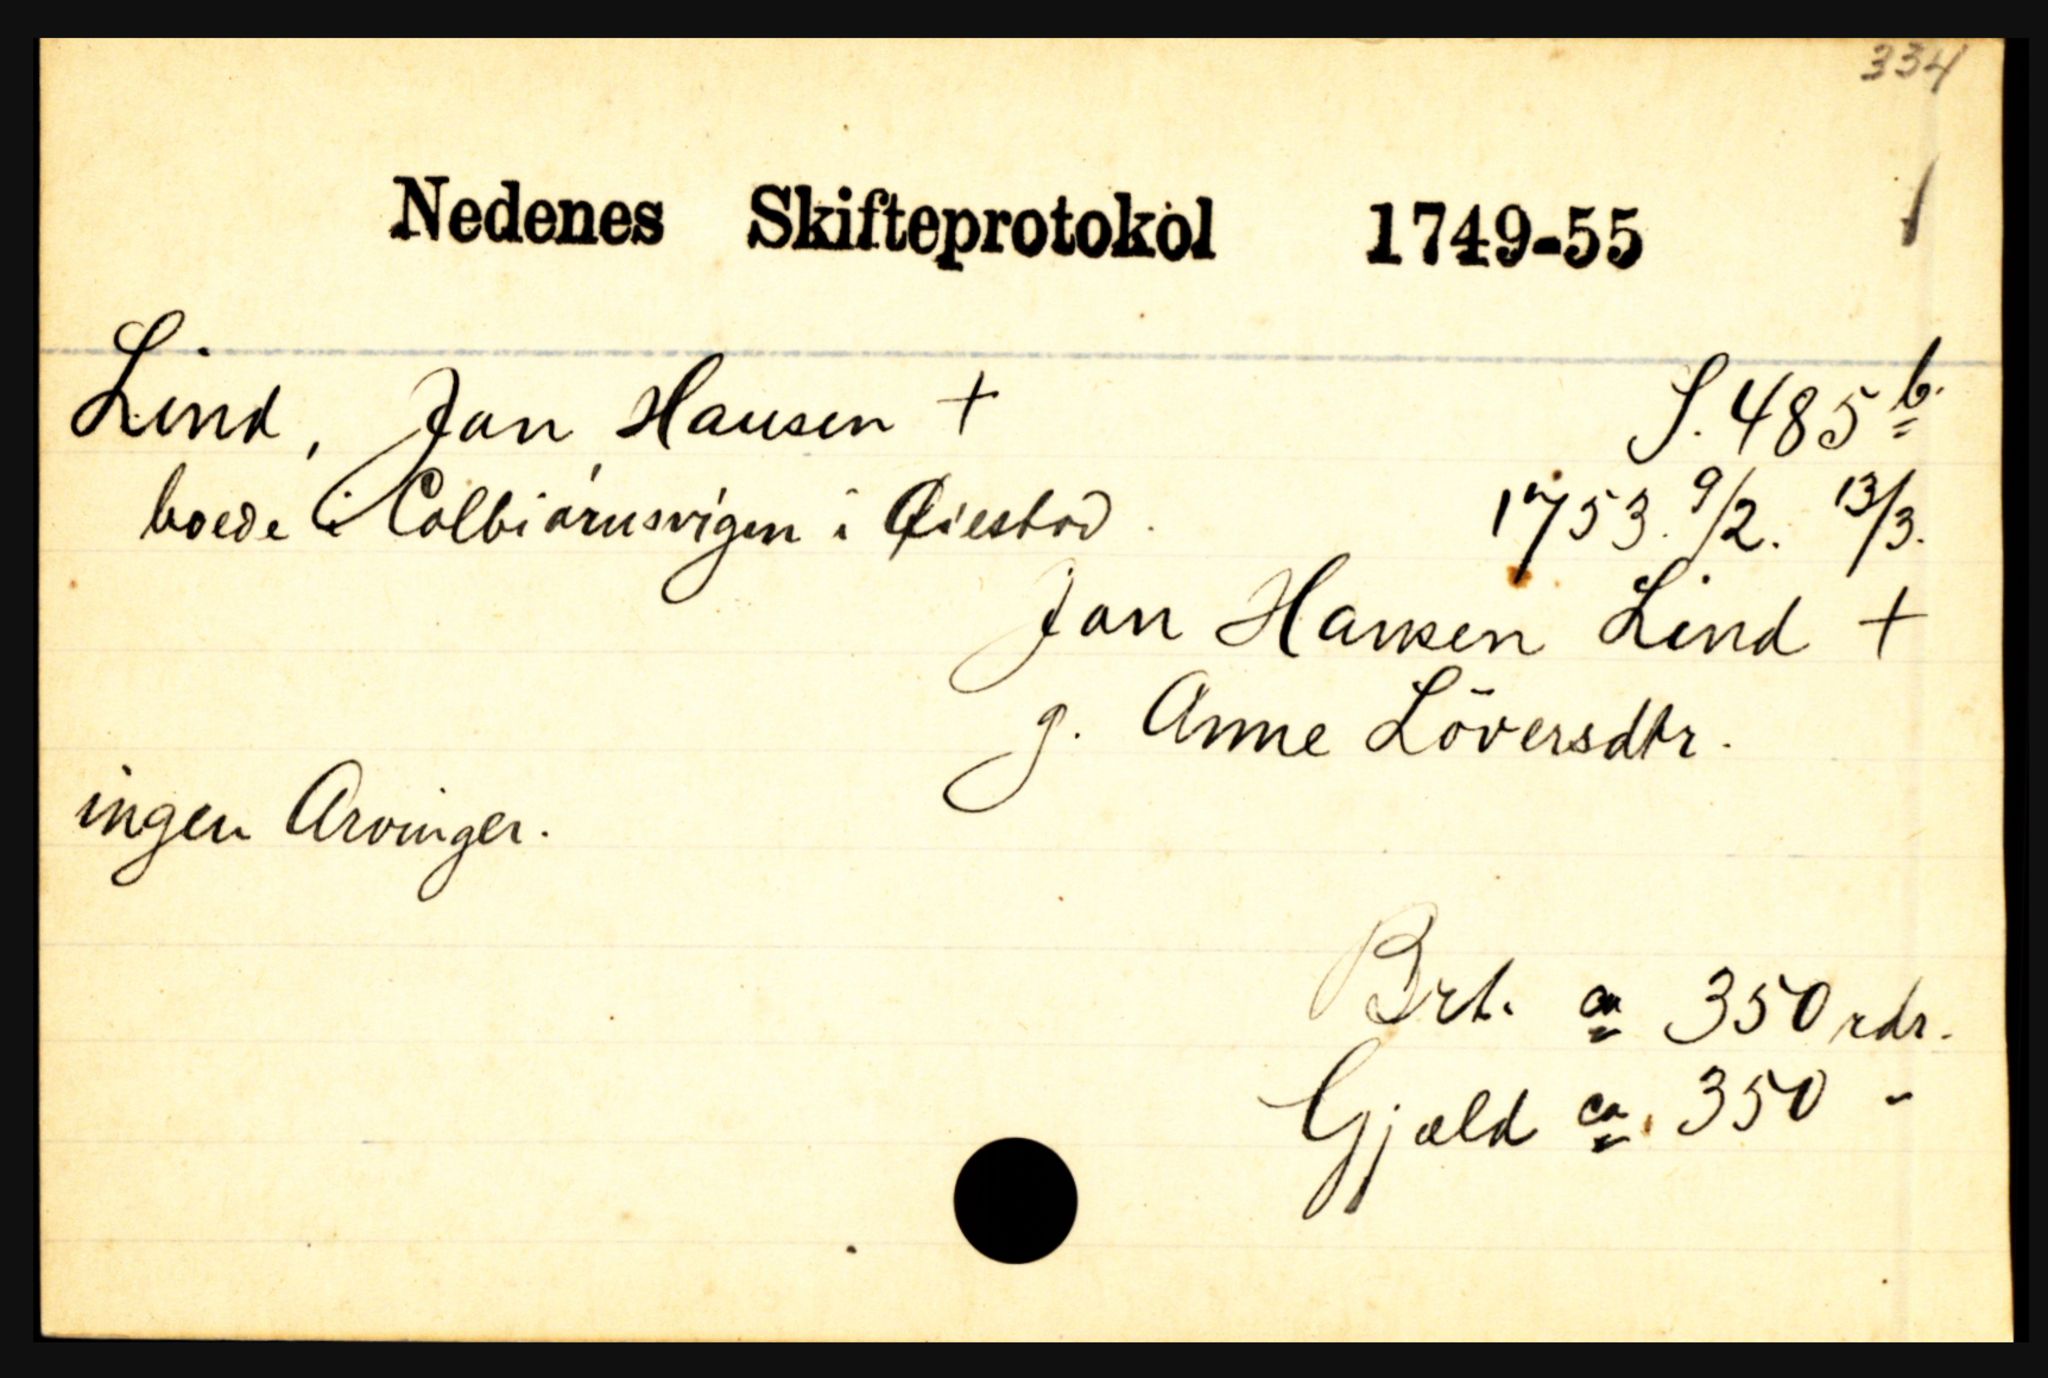 334
Nedenes Skifteprotokol 1749-55
Lind, Jan Hansen + S. 485 b.
boede i Colbiørnsvigen i Øiestad. 1753. 9/2. 13/3.
Jan Hansen Lind +
g. Anne Löversdtr.
ingen Arvinger.
Brt. ca 350 rdr.
Gjæld ca. 350 "